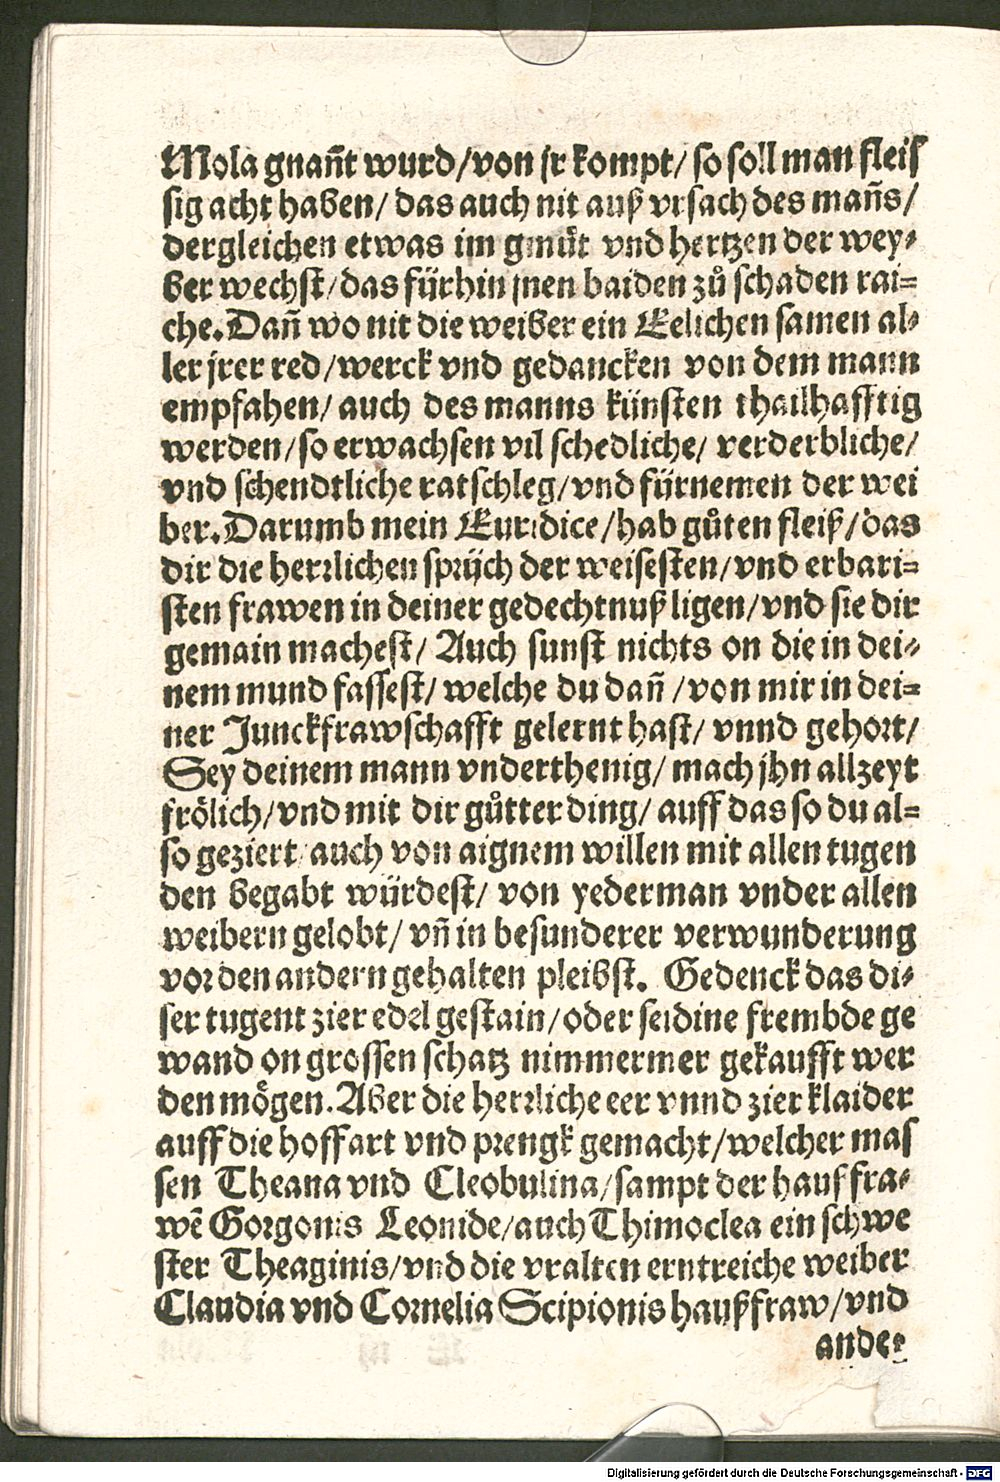 Mola gnañt wurd/von jr kompt/ so soll man fleis
sig acht haben/ das auch nit auß vrsach des mañs/
dergleichen etwas im gmüt vnd hertzen der wey-
ber wechst/das fürhin jnen baiden zů schaden rai-
che. Dañ wo nit die weiber ein Eelichen samen al-
ler jrer red/werck vnd gedancken von dem mann
empfahen/ auch des manns künsten thailhafftig
werden/so erwachsen vil schedliche/ verderbliche/
vnd schendtliche ratschleg/vnd fürnemen der wei
ber. Darumb mein Euridice/hab gůten fleiß/das
dir die herrlichen sprüch der weisesten/vnd erbari-
sten frawen in deiner gedechtnuß ligen/vnd sie dir
gemain machest/ Auch sunst nichts on die in dei-
nem mund fassest/ welche du dañ /von mir in dei-
ner Junckfrawschafft gelernt hast/ vnnd gehort/
Sey deinem mann vnderthenig/ mach jhn allzeyt
frölich/vnd mit dir gůtter ding/ auff das so du al-
so geziert auch von aignem willen mit allen tugen
den begabt würdest/ von yederman vnder allen
weibern gelobt/ vñ in besunderer verwunderung
vor den andern gehalten pleibst. Gedenck das di-
ser tugent zier edel gestain/oder seidine frembde ge
wand on grossen schatz nimmermer gekaufft wer
den mögen. Aber die herrliche eer vnnd zier klaider
auff die hoffart vnd prengk gemacht/welcher mas
sen Theana vnd Cleobulina/sampt der hausfra-
wē Gorgonis Leonide/auch Thimoclea ein schwe
ster Theaginis/vnd die vralten erntreiche weiber
Claudia vnd Cornelia Scipionis haußfraw/vnd
ander
Digitalisierung gefördert durch die Deutsche Forschungsgemeinschaft - DFG